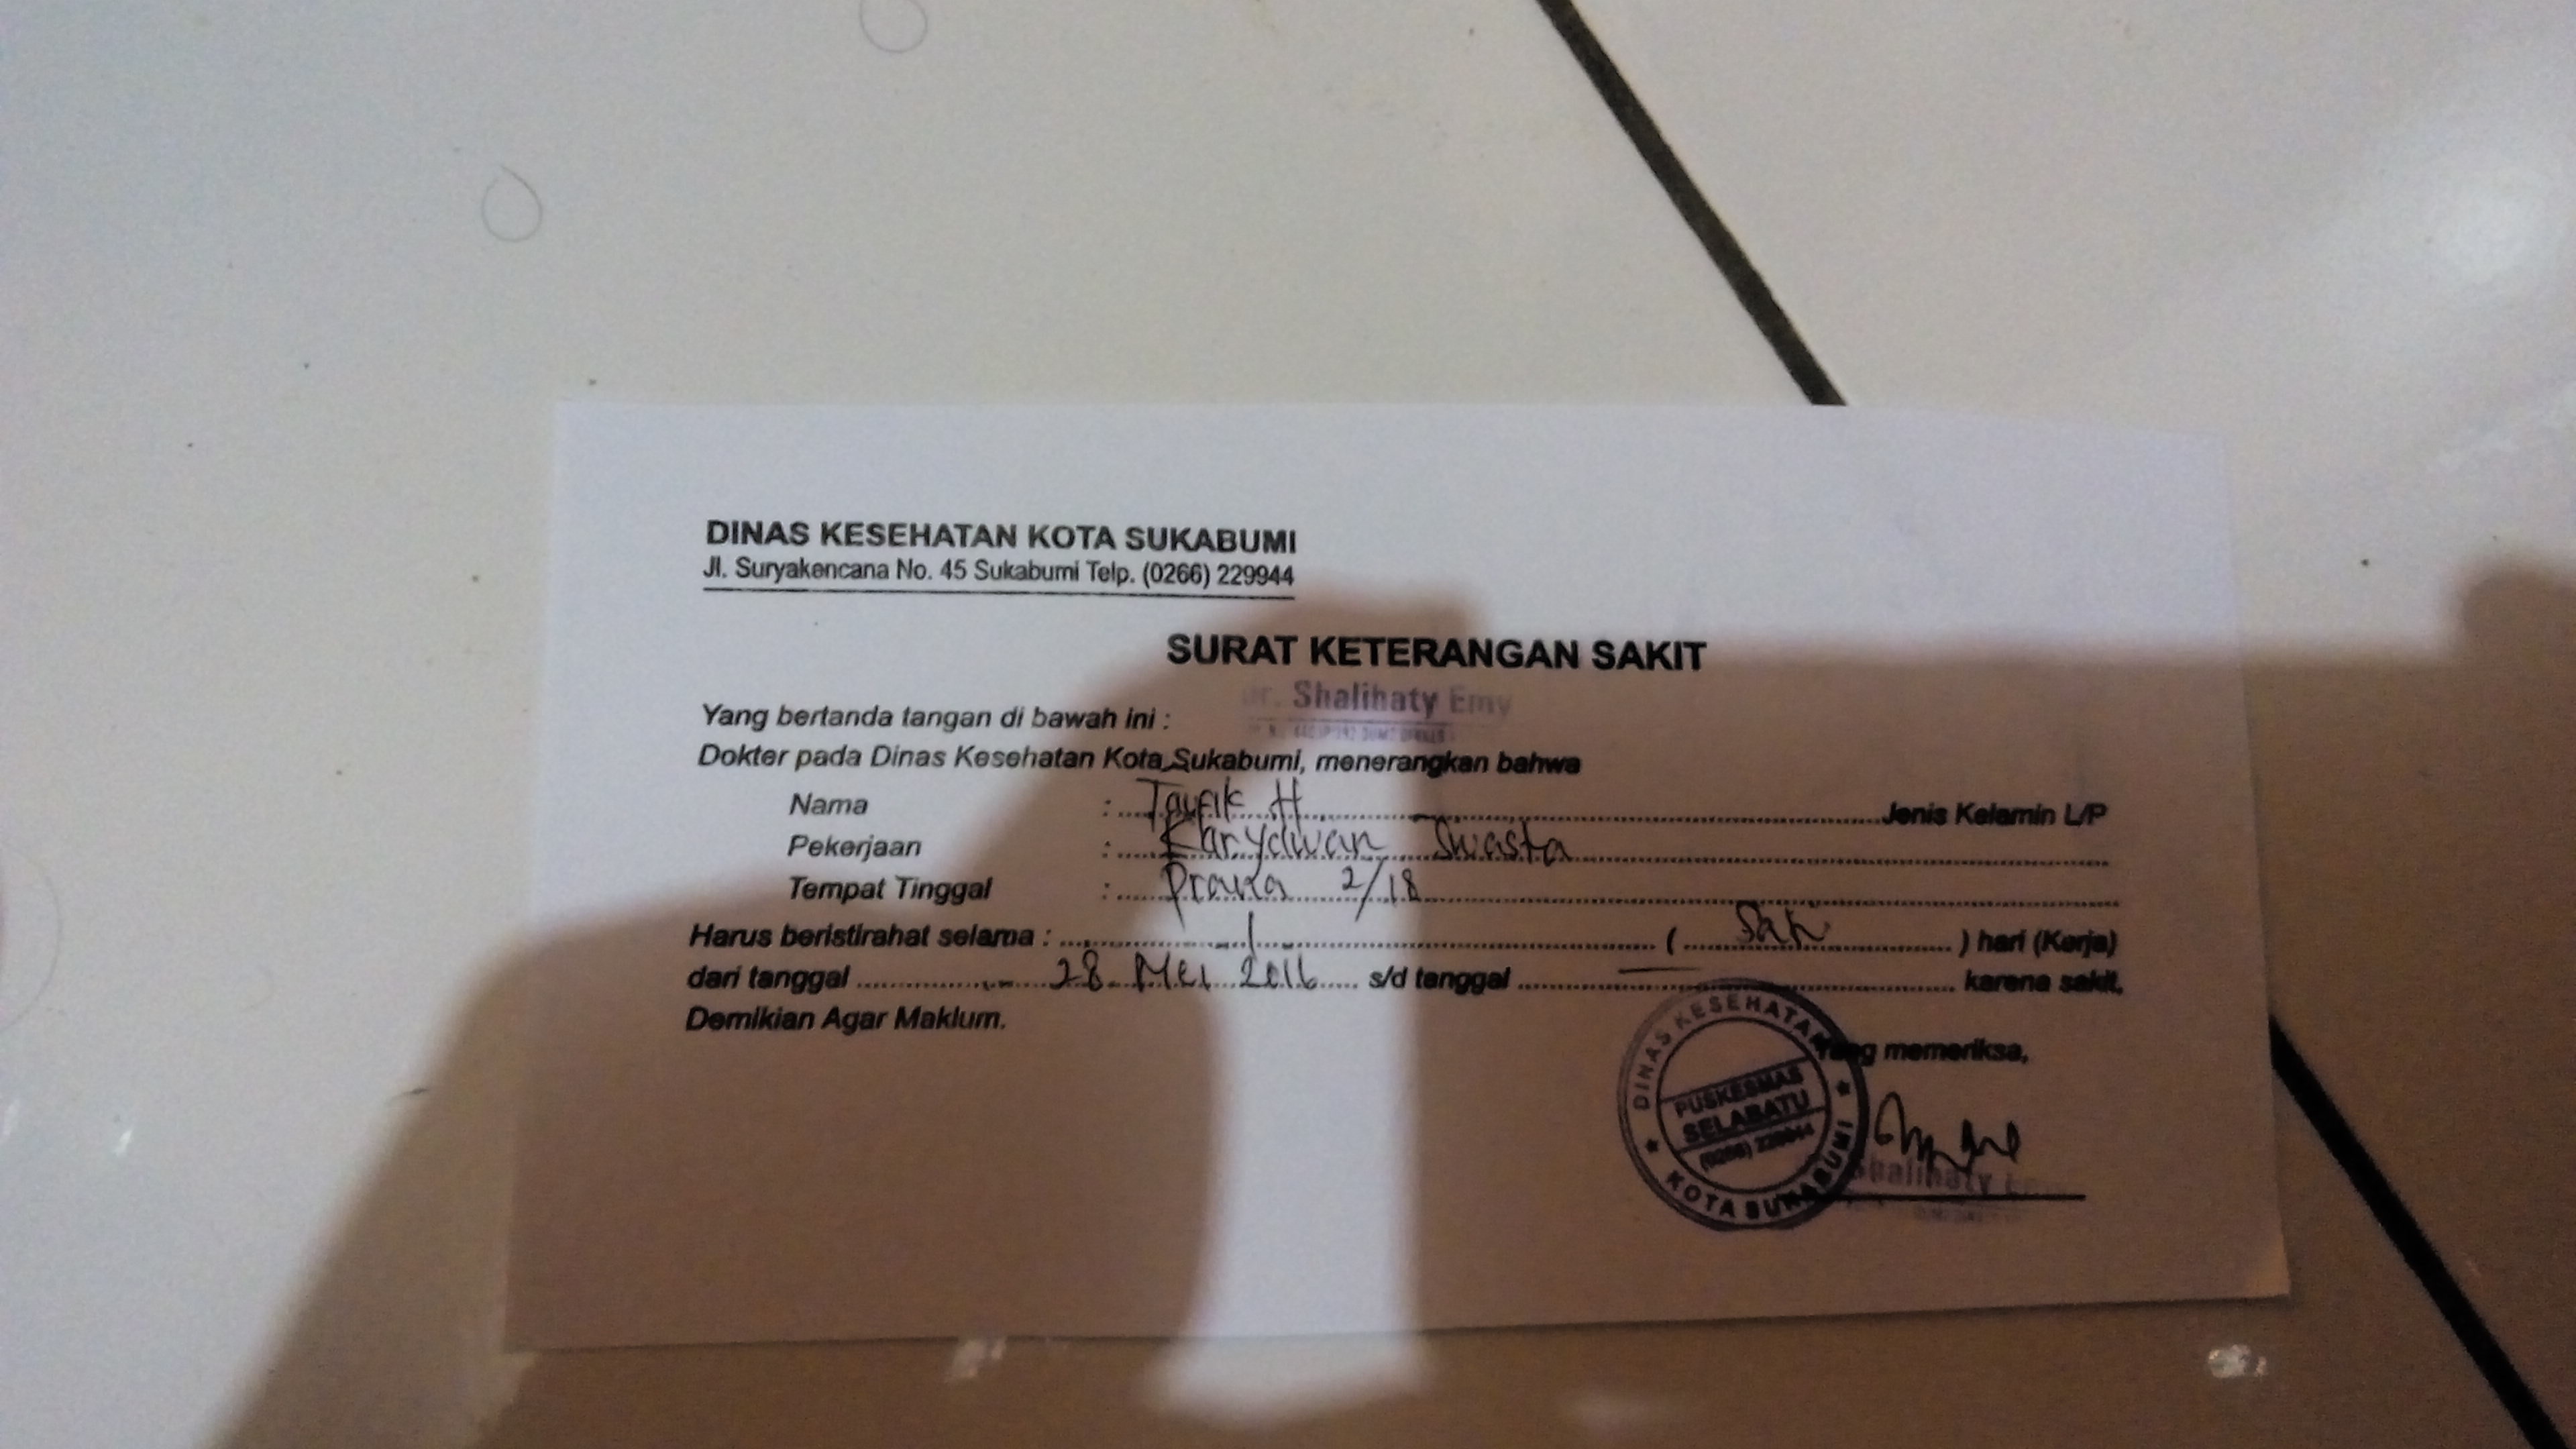 DINAS KESEHATAN KOTA SUKABUMI
Jl. Suryakencana No. 45 Sukabumi Telp. (0266) 229944
SURAT KETERANGAN SAKIT
Yang bertanda tangan di bawah ini : dr. Shalihaty Emy
Dokter pada Dinas Kesehatan Kota Sukabumi, menerangkan bahwa
Nama : Taufik H Jenis Kelamin L/P
Pekerjaan : Karyawan Swasta
Tempat Tinggal : 2/18
Harus beristirahat selama : 1 ( Satu ) hari (Kerja)
dari tanggal 28 Mei 2016 s/d tanggal — karena sakit,
Demikian Agar Maklum.
Yang memeriksa,
DINAS KESEHATAN
PUSKESMAS
SELABATU
(0266) 229944
KOTA SUKABUMI
Shalihaty